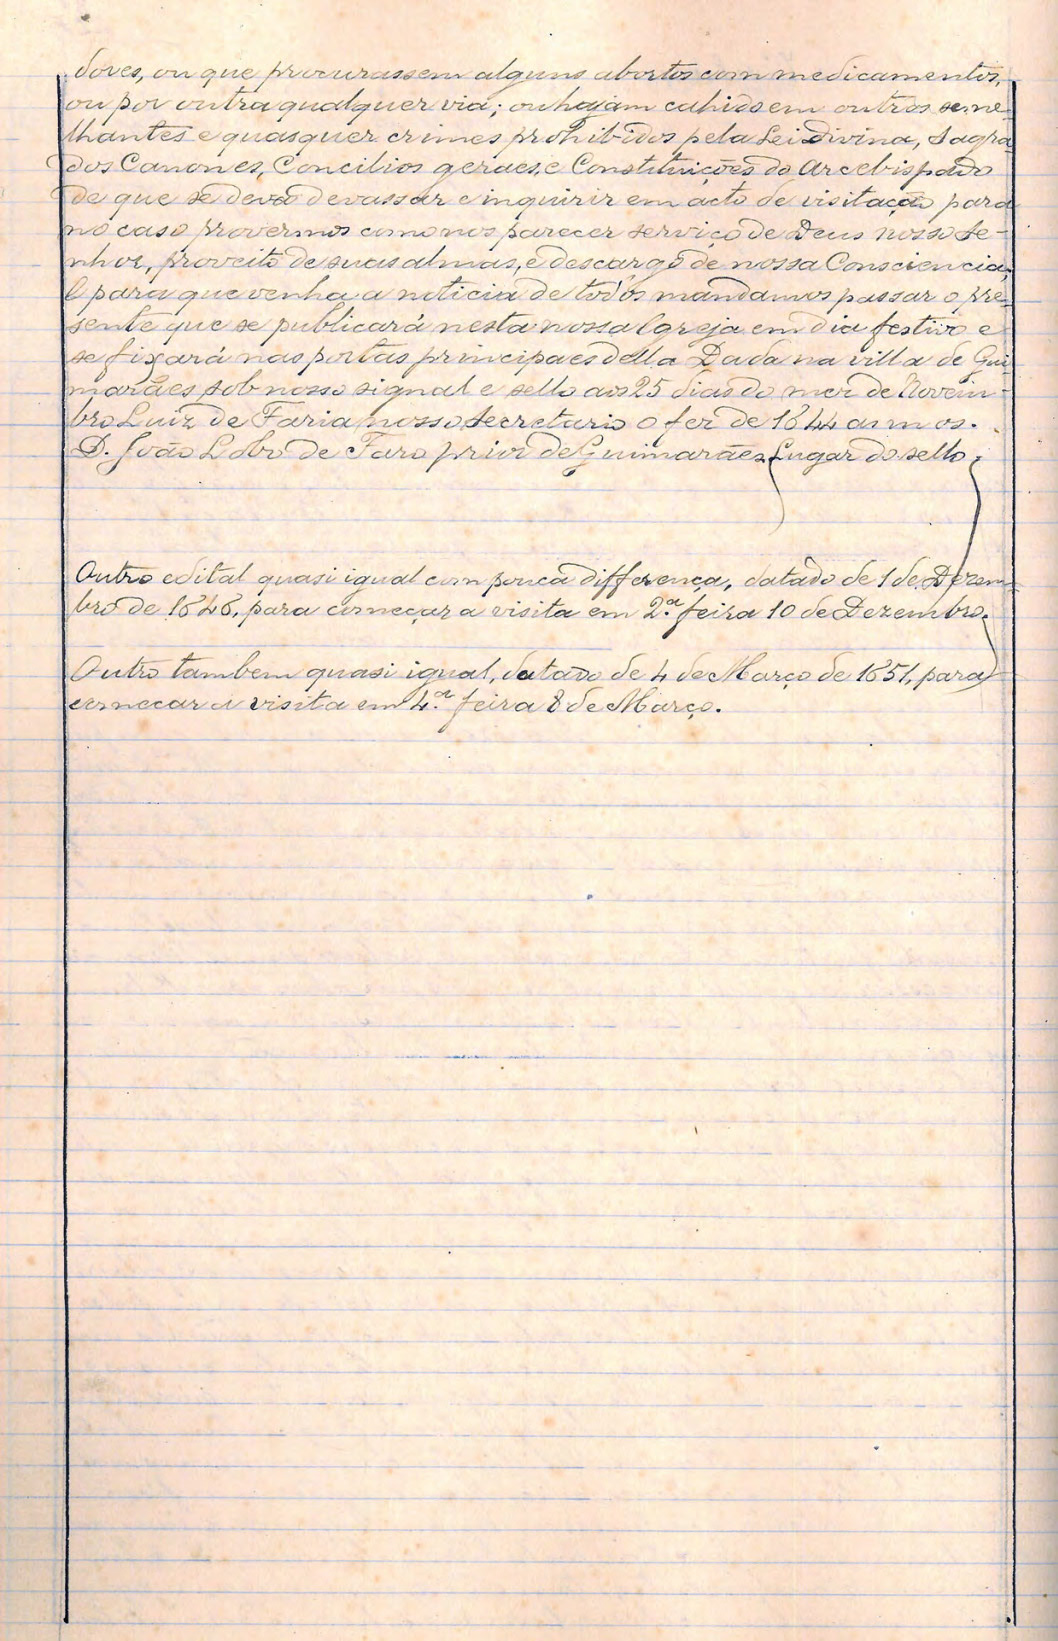 dores, ou que procurassem alguns abortos com medicamentos,
ou por outra qualquer via; ou hajam cahido em outros seme-
lhantes e quasquer crimes prohibidos pela Lei Divina, Sagra-
dos Canones, Concilios geraes, e Constituições do Arcebispado
de que se deva devassar e inquirir em acto de visitação para
no caso provermos como nos parecer serviço de Deus nosso Se-
nhor, proveito de suas almas, e descargo de nossa Consciencia;
E para que venha a noticia de todos mandamos passar o pre-
sente que se publicará nesta nossa Igreja em dia festivo e
se fixará nas portas principaes della Dada na villa de Gui
marães sob nosso signal e sello aos 25 dias do mez de Novem-
bro Luiz de Faria nosso Secretario o fez de 1644 annos.
D. João Lobo de Faro prior de Guimarães. Lugar do sello.
Outro edital quasi igual com pouca differença, datado de 1 de Dezem
bro de 1646, para começar a visita em 2.ª feira 10 de Dezembro.
Outro tambem quasi igual, datado de 4 de Março de 1651, para
começar a visita em 4.ª feira 8 de Março.